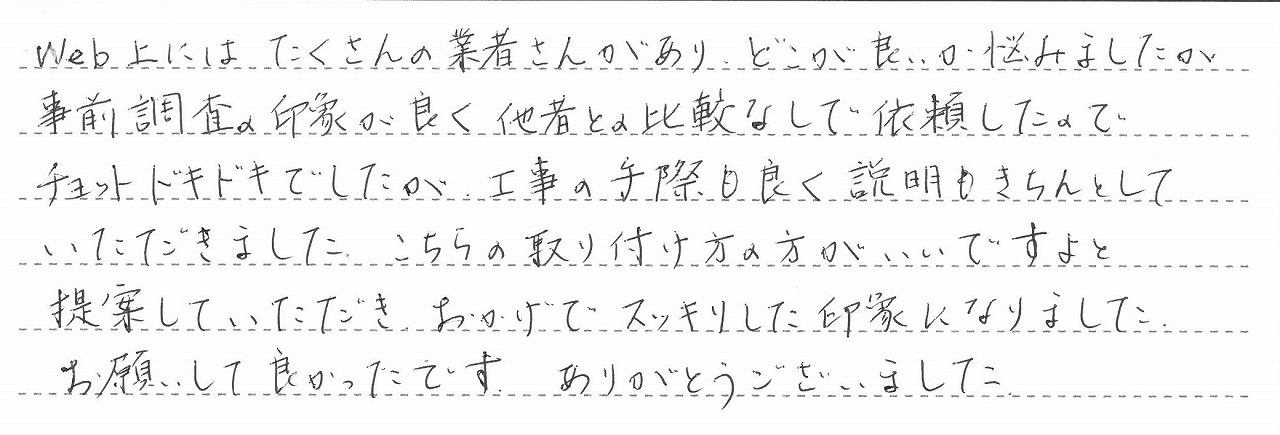 Web上にはたくさんの業者さんがあり、どこが良いか悩みましたが
事前調査の印象が良く他者との比較なしで依頼したので
チョットドキドキでしたが、工事の手際も良く説明もきちんとして
いただきました。こちらの取り付け方の方がいいですよと
提案していただき、おかげでスッキリした印象になりました。
お願いして良かったです。ありがとうございました。